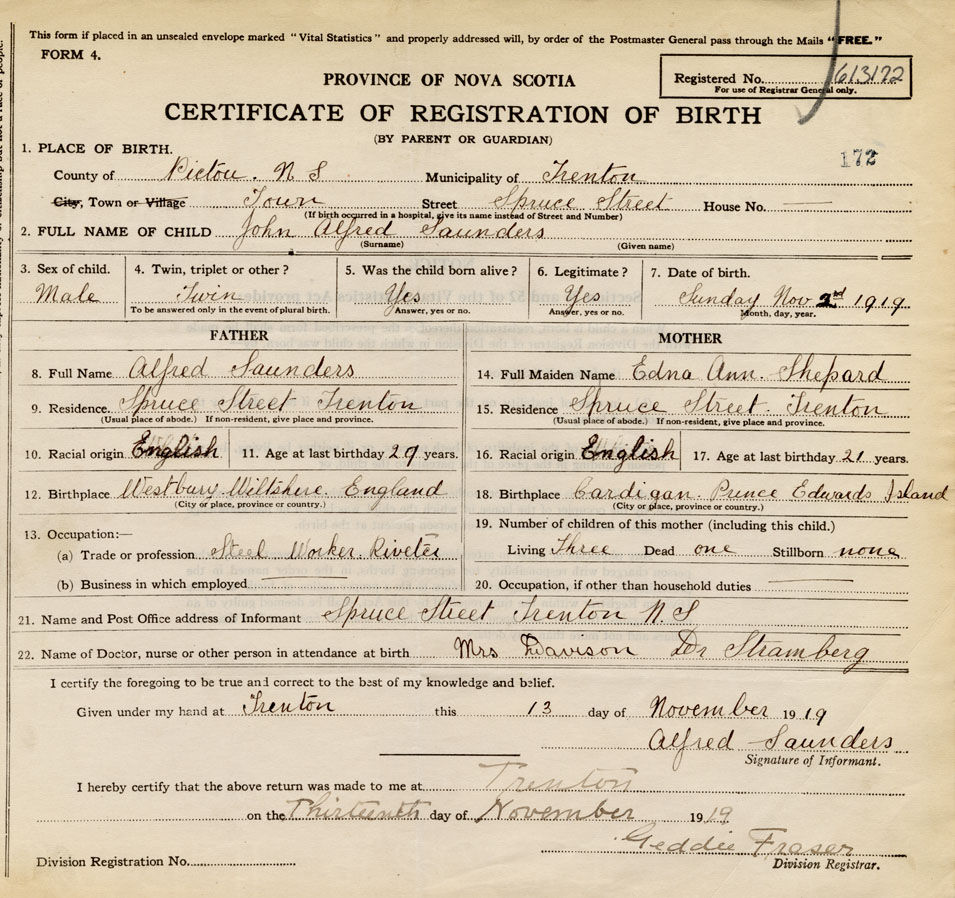 This form if placed in an unsealed envelope marked "Vital Statistics" and properly addressed will, by order of the Postmaster General pass through the Mails "FREE."
FORM 4.
PROVINCE OF NOVA SCOTIA
Registered No. 613172
For use of Registrar General only.
CERTIFICATE OF REGISTRATION OF BIRTH
(BY PARENT OR GUARDIAN)
172
1. PLACE OF BIRTH.
County of Pictou. N S Municipality of Trenton
City, Town or Village Town Street Spruce Street House No.
(If birth occurred in a hospital, give its name instead of Street and Number)
2. FULL NAME OF CHILD John Alfred Saunders
(Surname) (Given name)
3. Sex of child. 4. Twin, triplet or other? 5. Was the child born alive? 6. Legitimate? 7. Date of birth.
Male Twin Yes Yes Sunday Nov 2nd 1919
To be answered only in the event of plural birth. Answer, yes or no. Answer, yes or no. Month, day, year.
FATHER MOTHER
8. Full Name Alfred Saunders 14. Full Maiden Name Edna Ann. Shepard
9. Residence. Spruce Street Trenton 15. Residence Spruce Street. Trenton
(Usual place of abode.) If non-resident, give place and province. (Usual place of abode.) If non-resident, give place and province.
10. Racial origin English 11. Age at last birthday 29 years. 16. Racial origin English 17. Age at last birthday 21 years.
12. Birthplace Westbury Wiltshire. England 18. Birthplace Cardigan. Prince Edwards Island
(City or place, province or country.) (City or place, province or country.)
13. Occupation:— 19. Number of children of this mother (including this child.)
(a) Trade or profession Steel Worker. Riveter Living Three Dead one Stillborn none
(b) Business in which employed 20. Occupation, if other than household duties
21. Name and Post Office address of Informant Spruce Street Trenton N. S
22. Name of Doctor, nurse or other person in attendance at birth Mrs Davison Dr Stramberg
I certify the foregoing to be true and correct to the best of my knowledge and belief.
Given under my hand at Trenton this 13 day of November 1919
Alfred Saunders
Signature of Informant.
I hereby certify that the above return was made to me at Trenton
on the Thirteenth day of November 1919
Geddie Fraser
Division Registrar.
Division Registration No.